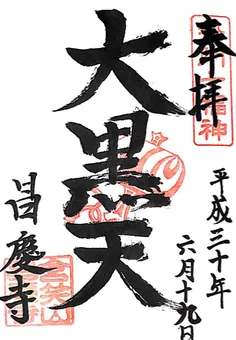 奉拝
大黒天
平成三十年
六月十九日
昌慶寺